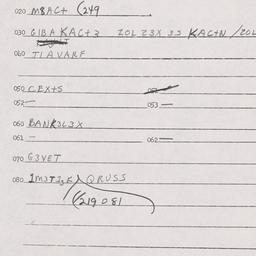 020 M8ACT (249
030 GIBA KACT3 ZOL Z3X 35 KACTN /ZOL
040 TIAVARF
050 CEXTS 051
052 — 053 —
060 BANK3L3X
061 — 062 —
070 G3VET
080 QRUSS
(219 081